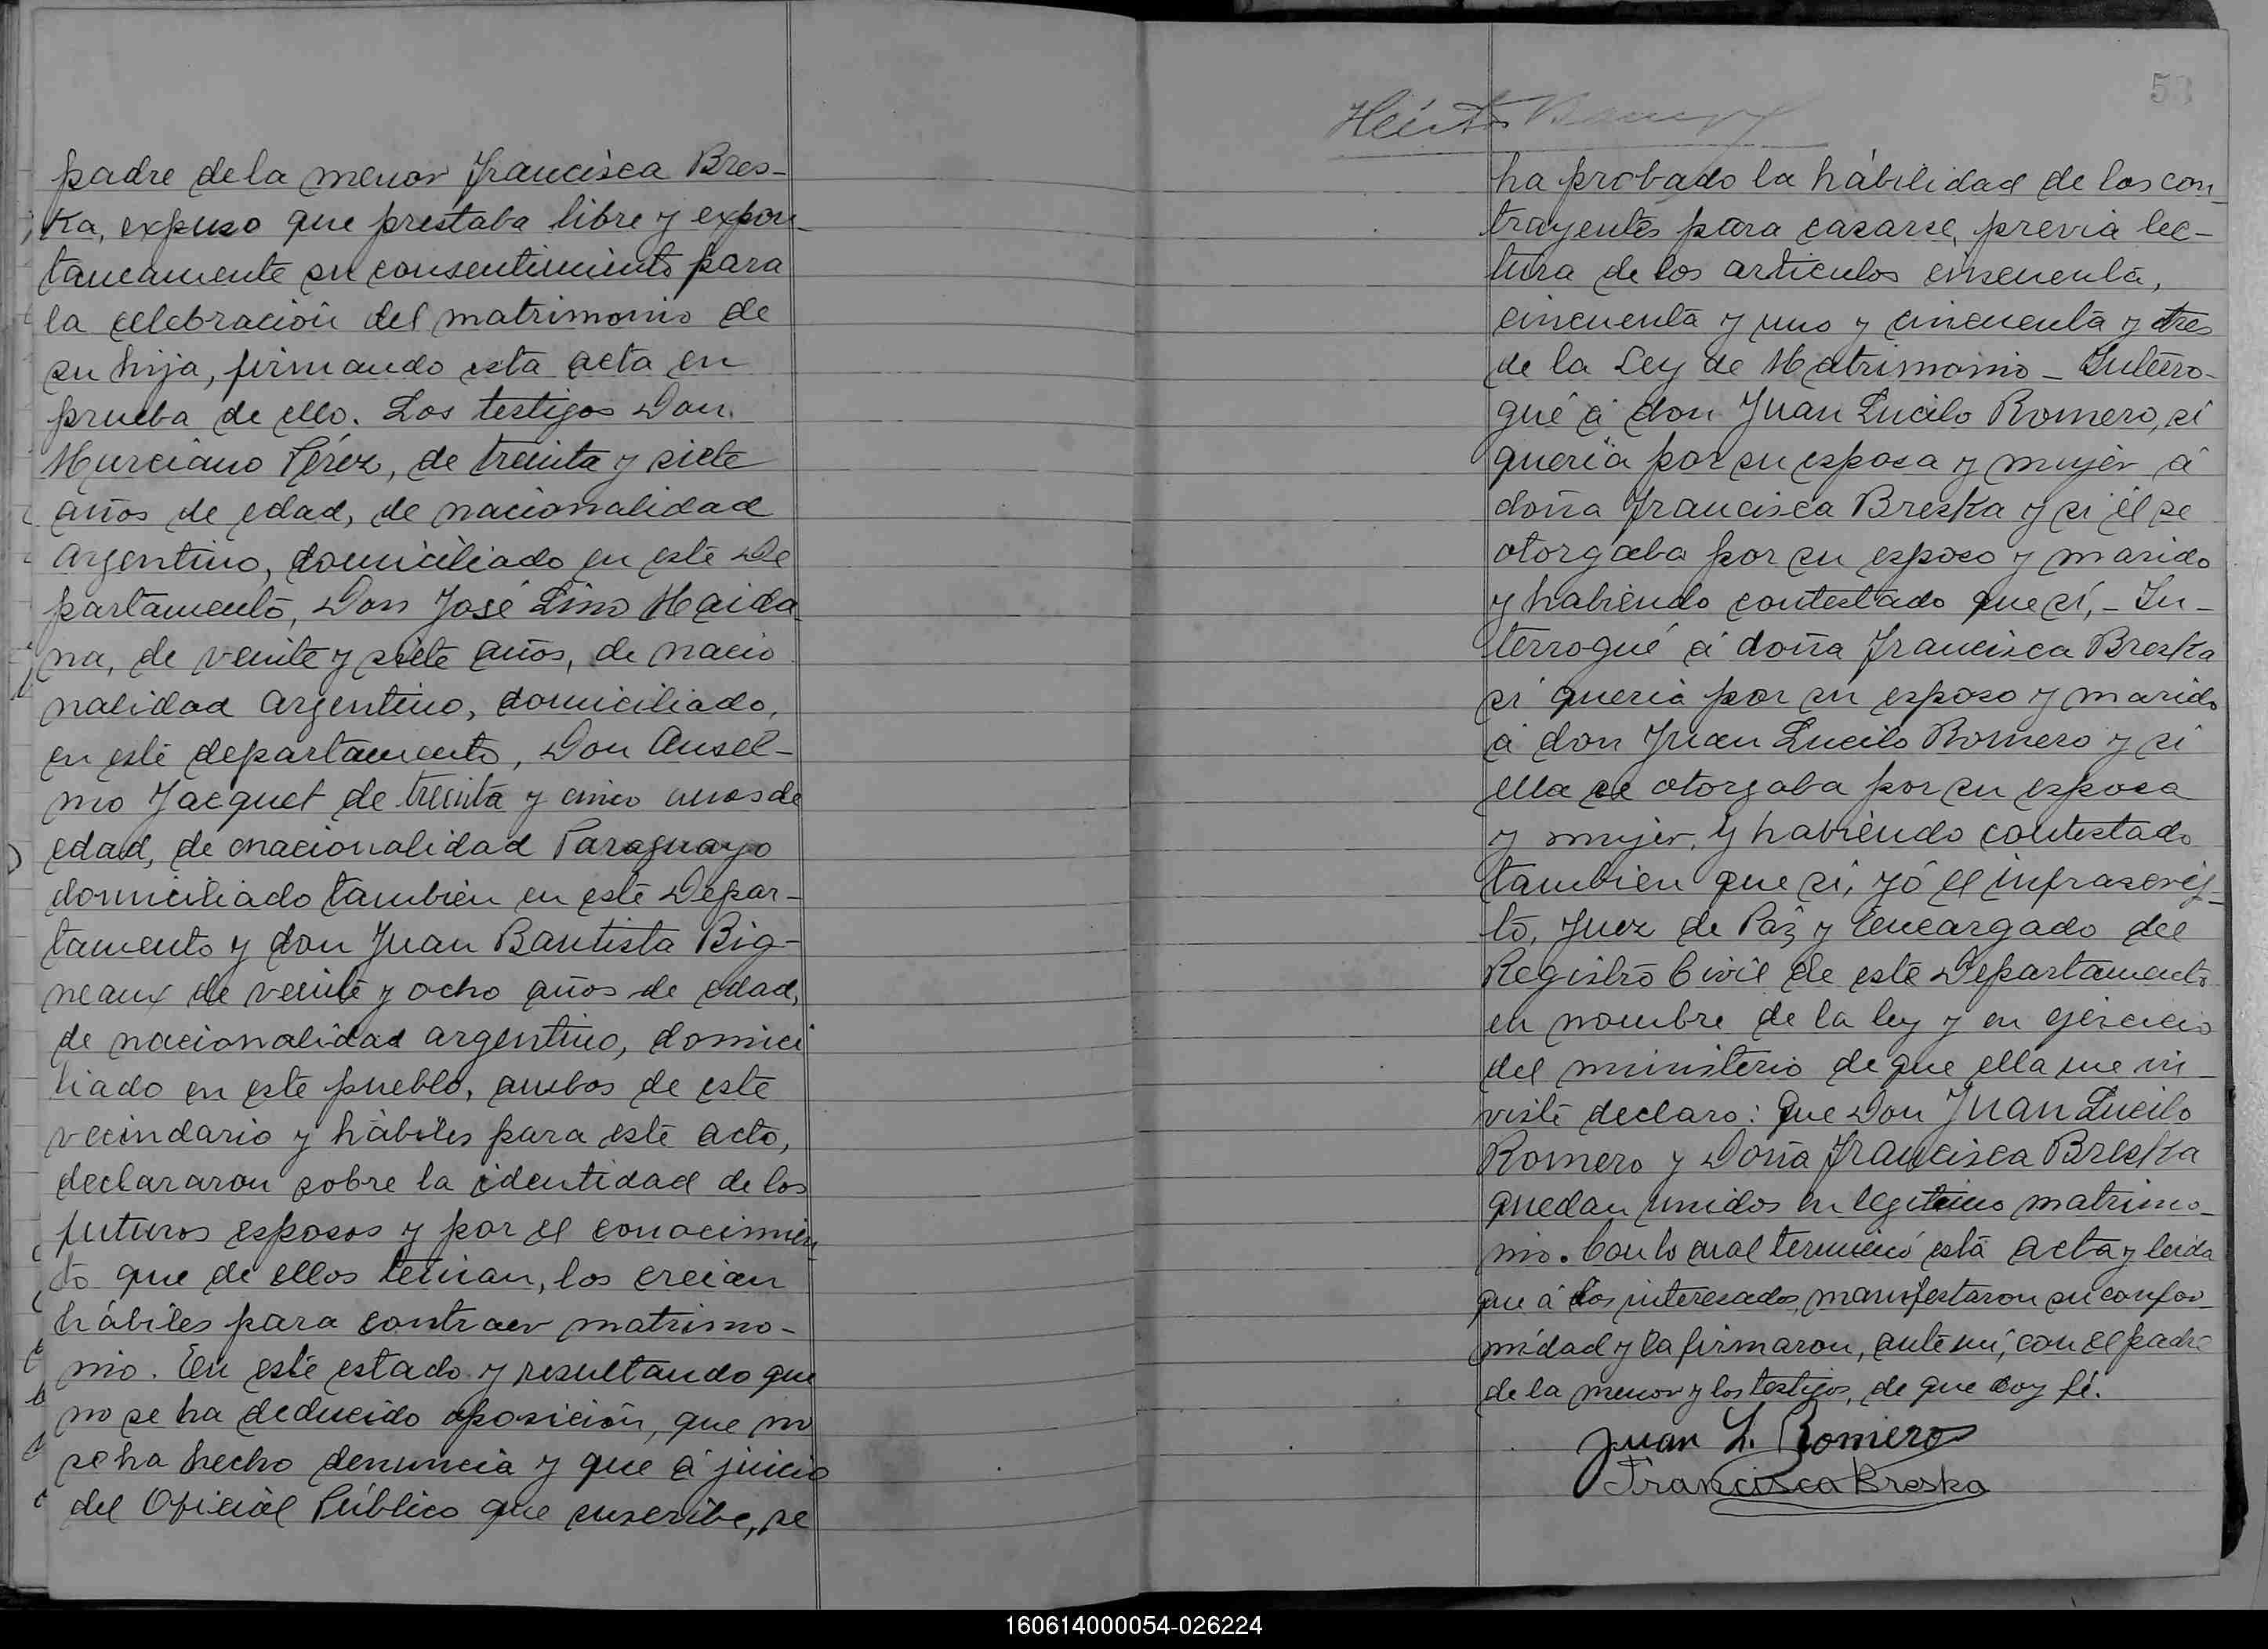 padre de la menor Francisca Bres-
ka, expuso que prestaba libre y expon-
taneamente su consentimiento para
la celebración del matrimonio de
su hija, firmando esta acta en
prueba de ello. Los testigos Don
Murciano Pérez, de treinta y siete
años de edad, de nacionalidad
argentino, domiciliado en este De
partamento, Don José Lino Maida
na, de veinte y siete años, de nacio
nalidad argentino, domiciliado,
en este departamento, Don Ansel-
mo Jacquet de treinta y cinco anos de
edad, de nacionalidad Paraguayo
domiciliado tambien en este Depar-
tamento y don Juan Bautista Big-
neaux de veinte y ocho años de edad,
de nacionalidad argentino, domici
liado en este pueblo, ambos de este
vecindario y hábiles para este acto,
declararon sobre la identidad de los
futuros esposos y por el conocimien
to que de ellos tenian, los creian
hábiles para contraer matrimo-
nio. En este estado y resultando que
no se ha deducido oposición, que no
se ha hecho denuncia y que á juicio
del Oficial Público que suscribe, se
53
ha probado la hábilidad de los con-
trayentes para casarse, previa lec-
tura de los articulos cincuenta,
cincuenta y uno y cincuenta y tres
de la Ley de Matrimonio - Interro-
gué á don Juan Lucilo Romero, si
queria por su esposa y mujer á
doña Francisca Breska y si él se
otorgaba por su esposo y marido
y habiendo contestado que sí, - In-
terrogué á doña Francisca Breska
si queria por su esposo y marido
á don Juan Lucilo Romero y si
ella se otorgaba por su esposa
y mujer, y habiendo contestado
tambien que si, yó el infrascrip-
to, Juez de Paz y Encargado del
Registro Civil de este Departamento
en nombre de la ley y en ejercicio
del ministerio de que ella me in-
viste declaro: que Don Juan Lucilo
Romero y Doña Francisca Breska
quedan unidos en legitimo matrimo-
nio. Con lo cual terminó esta acta y leida
que á los interesados, manifestaron su confor-
midad y la firmaron, ante mi, con el padre
de la menor y los testigos, de que doy fé.
Juan L. Romero
Francisca Breska
160614000054-026224